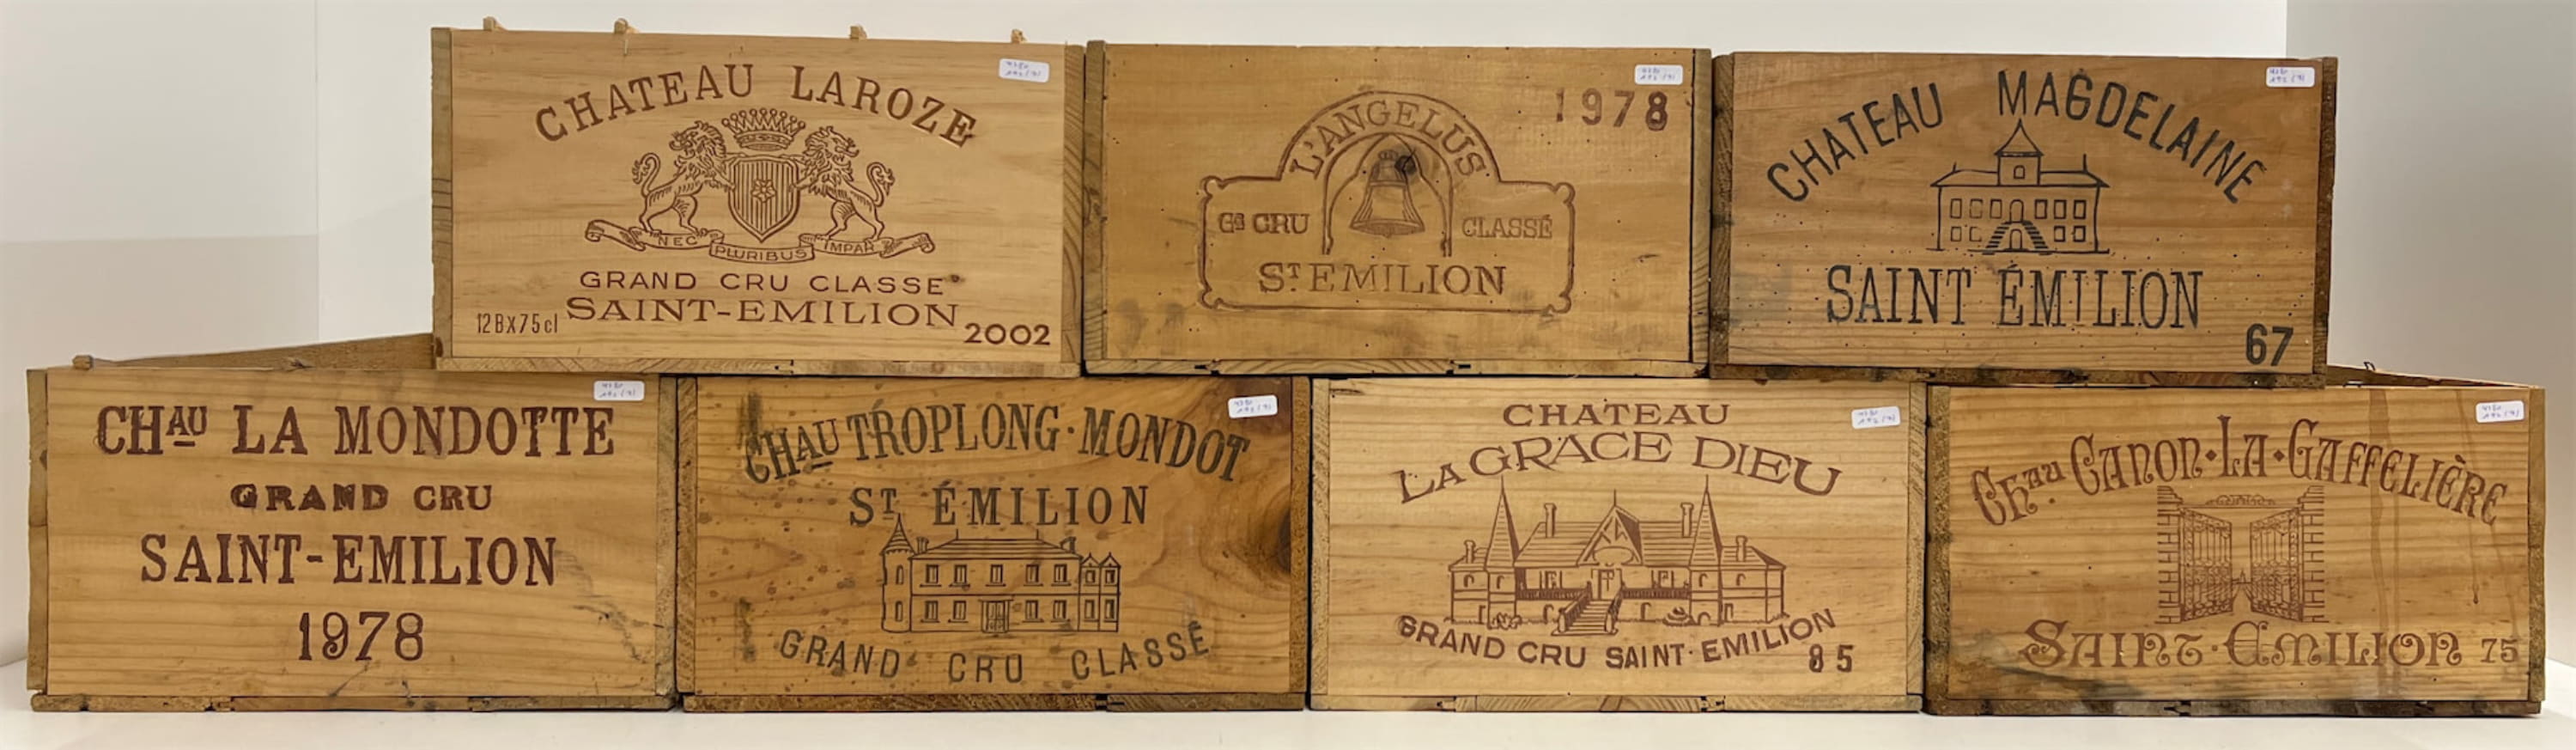 CHATEAU LAROZE
NEC PLURIBUS IMPAR
GRAND CRU CLASSE
SAINT-EMILION
12BX75cl
2002
1978
L'ANGELUS
Gd CRU CLASSÉ
ST EMILION
CHATEAU MAGDELAINE
SAINT ÉMILION
67
CHAU LA MONDOTTE
GRAND CRU
SAINT-EMILION
1978
CHAU TROPLONG·MONDOT
ST ÉMILION
GRAND CRU CLASSÉ
CHATEAU
LA GRACE DIEU
GRAND CRU SAINT·EMILION
85
Chau. CANON·LA·GAFFELIÈRE
SAINT·EMILION 75